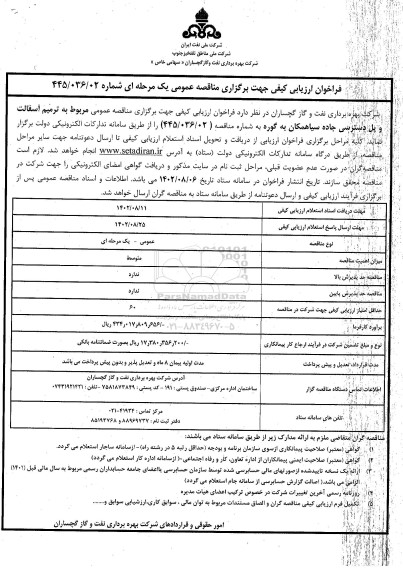 شرکت ملی نفت ایران
شرکت ملی مناطق نفتخیز جنوب
شرکت بهره برداری نفت و گاز گچساران « سهامی خاص »
فراخوان ارزیابی کیفی جهت برگزاری مناقصه عمومی یک مرحله ای شماره ۴۴۵/۰۳۶/۰۲
شرکت بهره برداری نفت و گاز گچساران در نظر دارد فراخوان ارزیابی کیفی جهت برگزاری مناقصه عمومی مربوط به ترمیم آسفالت
و پل دسترسی جاده سیاهمکان به گوره به شماره مناقصه ( ۴۴۵/۰۳۶/۰۲) را از طریق سامانه تدارکات الکترونیکی دولت برگزار
نماید. کلیه مراحل برگزاری فراخوان ارزیابی از دریافت و تحویل اسناد استعلام ارزیابی کیفی تا ارسال دعوتنامه جهت سایر مراحل
مناقصه، از طریق درگاه سامانه تدارکات الکترونیکی دولت (ستاد) به آدرس www.setadiran.ir انجام خواهد شد. لازم است
مناقصه گران در صورت عدم عضویت قبلی، مراحل ثبت نام در سایت مذکور و دریافت گواهی امضای الکترونیکی را جهت شرکت در
مناقصه محقق سازند. تاریخ انتشار فراخوان در سامانه ستاد تاریخ ۱۴۰۲/۰۸/۰۶ می باشد. اطلاعات و اسناد مناقصه عمومی پس از
برگزاری فرآیند ارزیابی کیفی و ارسال دعوتنامه از طریق سامانه ستاد به مناقصه گران ارسال خواهد شد.
مهلت دریافت اسناد استعلام ارزیابی کیفی ۱۴۰۲/۰۸/۱۱
مهلت ارسال پاسخ استعلام ارزیابی کیفی ۱۴۰۲/۰۸/۲۵
نوع مناقصه عمومی - یک مرحله ای
میزان اهمیت مناقصه متوسط
مناقصه حد پذیرش بالا ندارد
مناقصه حد پذیرش پایین ندارد
حداقل امتیاز ارزیابی کیفی جهت شرکت در مناقصه ۶۰
برآورد کارفرما
نوع و مبلغ تضمین شرکت در فرآیند ارجاع کار پیمانکاری ۱۷٬۳۸۰٬۳۵۶٬۲۰۰/- ریال بصورت ضمانتنامه بانکی
مدت قرارداد، تعدیل و پیش پرداخت مدت اولیه پیمان ۸ ماه و تعدیل پذیر و بدون پیش پرداخت می باشد
اطلاعات تماس دستگاه مناقصه گزار آدرس شرکت بهره برداری نفت و گاز گچساران
ساختمان اداره مرکزی- صندوق پستی : ۱۹۱ - کد پستی : ۷۵۸۱۸۷۳۸۴۹ - تلفن : ۰۷۴۳۱۹۲۱۲۳۱
تلفن های سامانه ستاد مرکز تماس ۴۱۹۳۴-۰۲۱
دفتر ثبت نام : ۸۸۹۶۹۷۳۷ و ۸۵۱۹۳۷۶۸
مناقصه گران متقاضی ملزم به ارائه مدارک زیر از طریق سامانه ستاد می باشند:
۱) گواهی (معتبر) صلاحیت پیمانکاری ازسوی سازمان برنامه و بودجه (حداقل رتبه ۵ در رشته راه) - ازسامانه ساجار استعلام می گردد.
۲) گواهی (معتبر) صلاحیت ایمنی پیمانکاران از اداره تعاون، کار و رفاه اجتماعی -( ازسامانه اداره کار استعلام می گردد)
۳) ارائه یک نسخه تاییدشده ازصورتهای مالی حسابرسی شده توسط سازمان حسابرسی یااعضای جامعه حسابداران رسمی مربوط به سال مالی قبل (۱۴۰۱)
الزامی می باشد.( اصالت گزارش حسابرسی از سامانه جام استعلام می گردد)
۴) روزنامه رسمی آخرین تغییرات شرکت در خصوص ترکیب اعضای هیات مدیره
۵) تکمیل فرم ارزیابی کیفی مناقصه گران و الصاق مستندات مربوط به توان مالی ، سوابق کاری،ارزشیابی سوابق و......
امور حقوقی و قراردادهای شرکت بهره برداری نفت و گاز گچساران